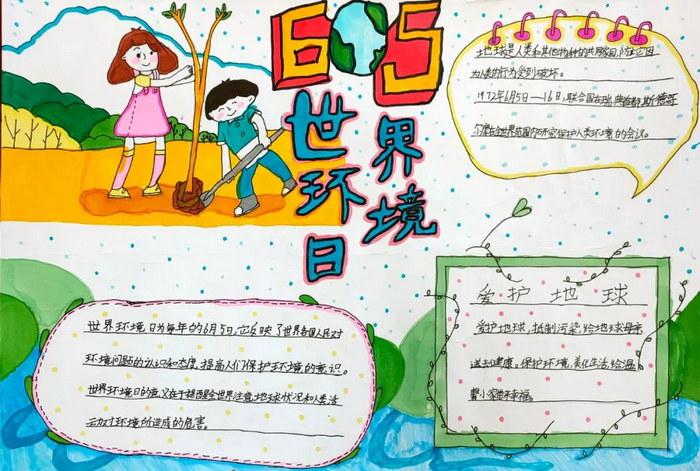 605
世界环境日
地球是人类和其他物种的共同家园,
为人类的行为受到破坏。
1972年6月5日—16日,联合国在瑞典首都斯德哥
尔摩
世界范围内研究保护人类环境的会议。
世界环境日为每年的6月5日,它反映了世界各国人民对
环境问题的认识和态度,提高人们保护环境的意识。
世界环境日的意义在于提醒全世界注意地球状况和人类活
动对环境所造成的危害。
爱护地球
爱护地球,抵制污染,给地球母亲
送去健康。保护环境,美化生活,给温
馨小家带来幸福。